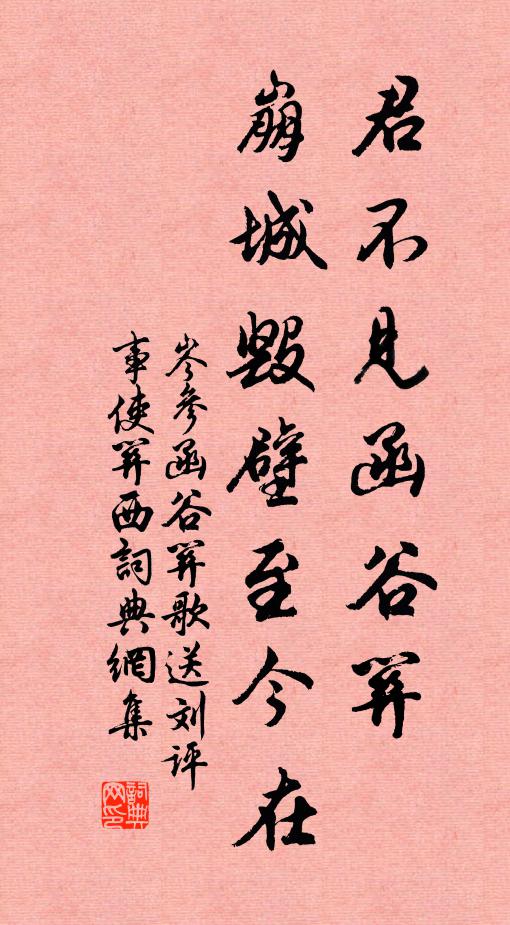 君不见函谷关
崩城毁壁至今在
岑参函谷关歌送刘评
事使关西詞典網集
詞典
网印